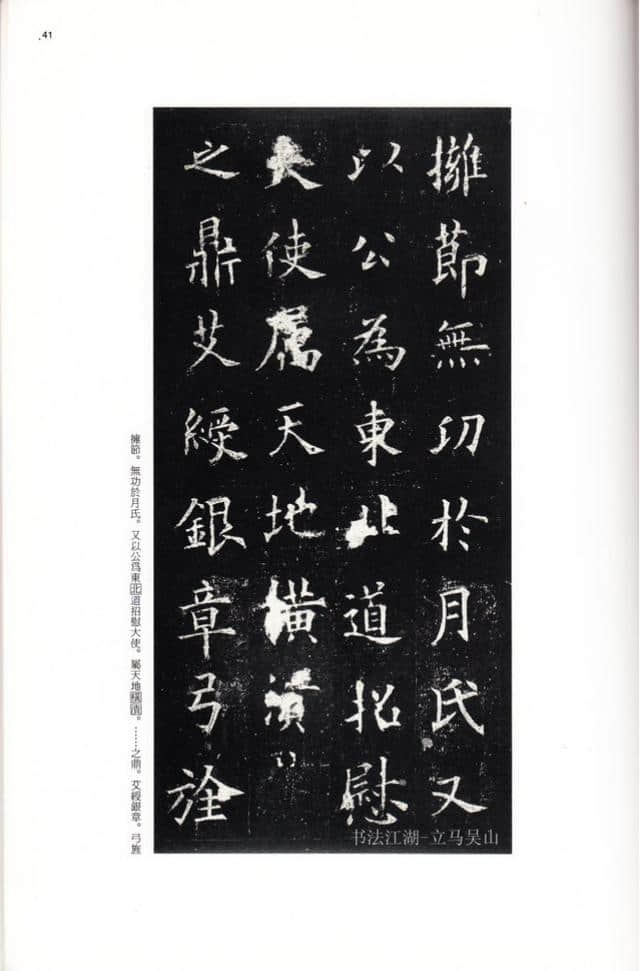 .41
擁節無功於月氏又
以公為東北道招慰
大使屬天地橫潰
之鼎艾綬銀章弓旌
擁節。無功於月氏。又以公爲東北道招慰大使。屬天地橫潰。……之鼎。艾綬銀章。弓旌
书法江湖-立马吴山